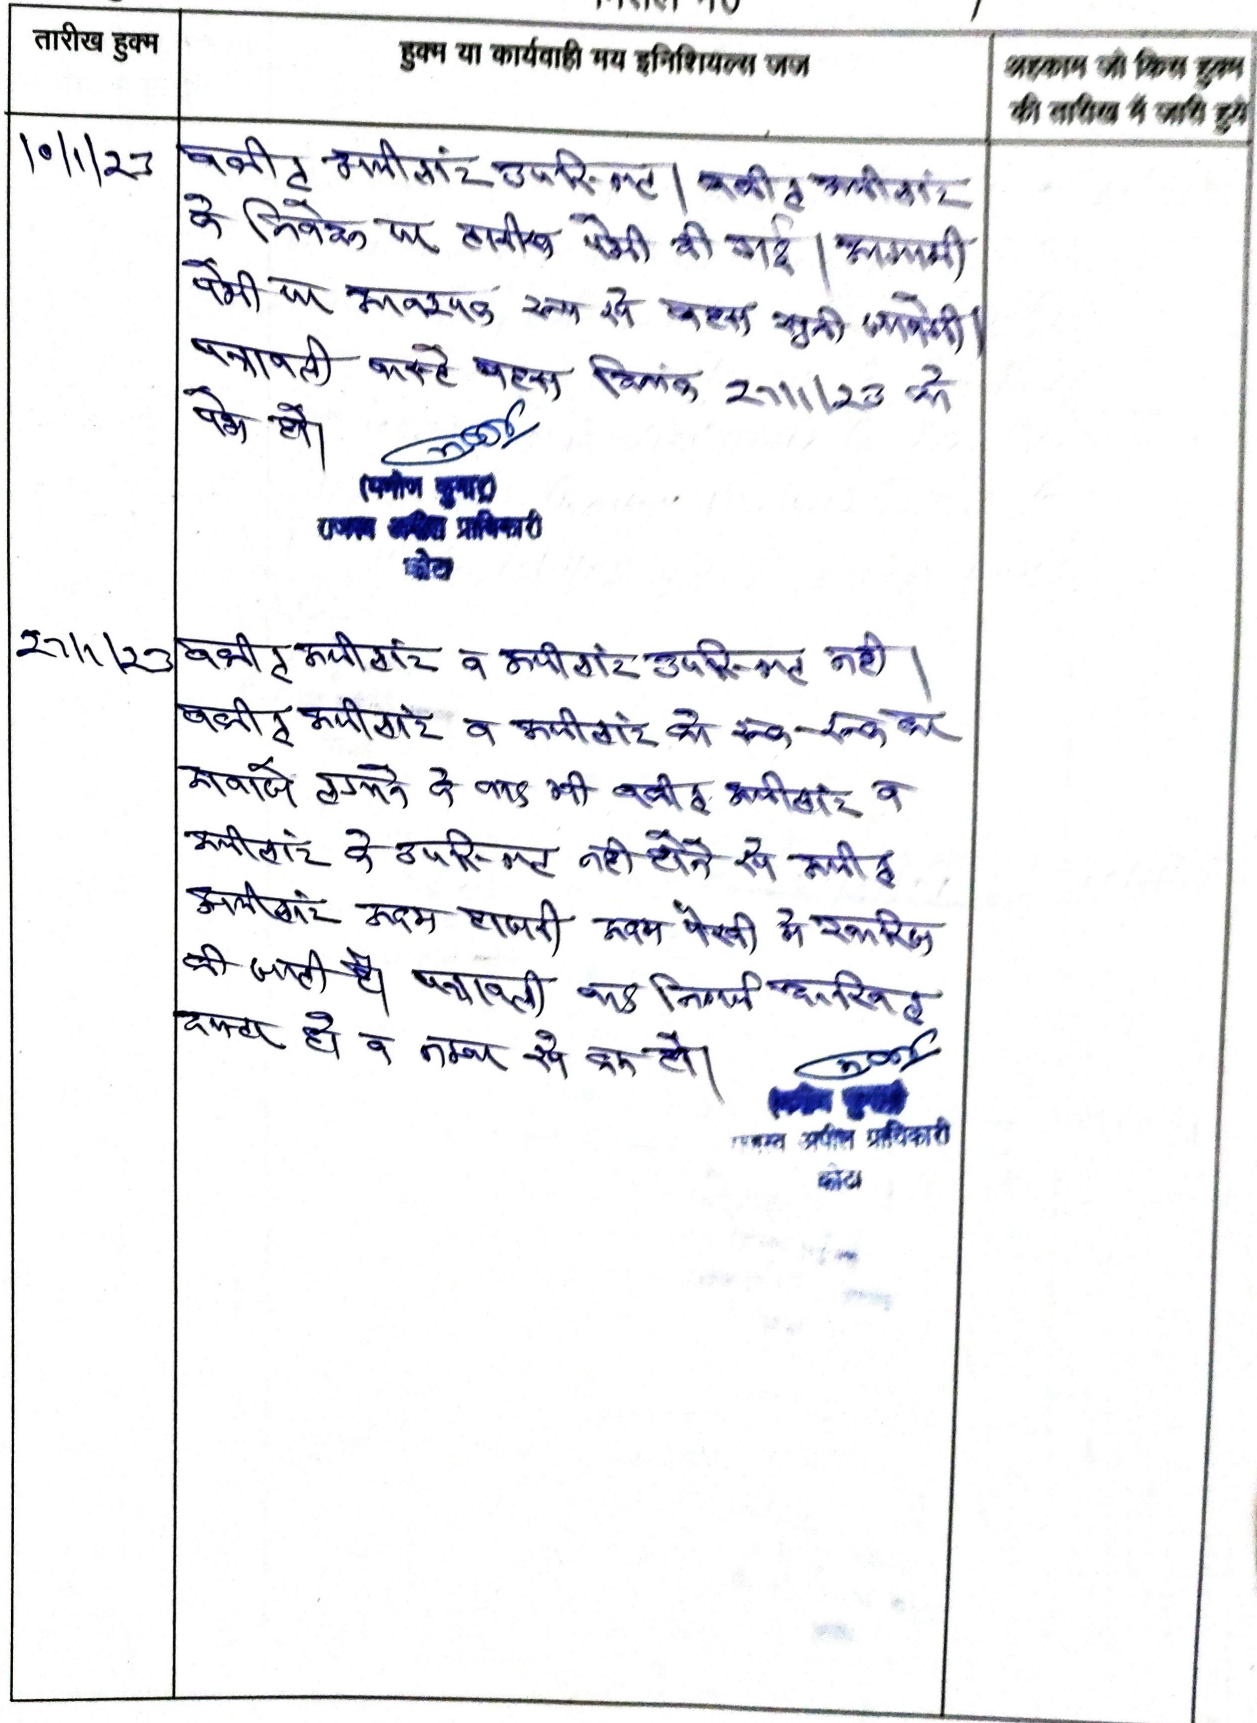 मिसल नं०
तारीख हुक्म
हुक्म या कार्यवाही मय इनिशियल्स जज
अहकाम जो किस हुक्म
की तारीख में जारी हुये
10/1/23
वकील अपीलांट उपस्थित। वकील अपीलांट
के निवेदन पर तारीख पेशी दी गई। आगामी
पेशी पर आवश्यक रूप से बहस सुनी जावेगी।
पत्रावली वास्ते बहस दिनांक 27/1/23 को
पेश हो।
राजस्व अपील प्राधिकारी
कोटा
27/1/23
वकील अपीलांट व अपीलांट उपस्थित नहीं।
वकील अपीलांट व अपीलांट को रूक-रूक कर
आवाजे लगाने के बाद भी वकील अपीलांट व
अपीलांट के उपस्थित नहीं होने से अपील
अपीलांट अदम हाजरी अदम पैरवी में खारिज
की जाती है। पत्रावली बाद निर्णय दाखिल
दफ्तर हो व नम्बर से कम हो।
राजस्व अपील प्राधिकारी
कोटा